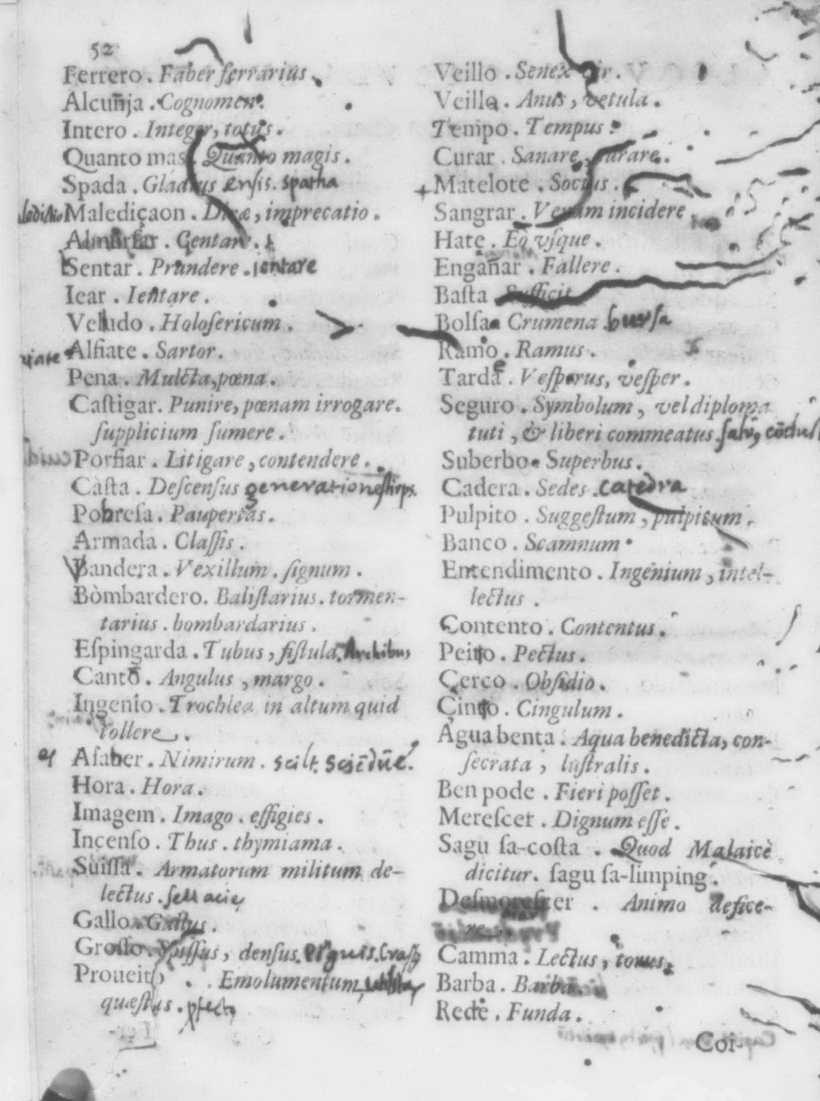 52
Ferrero . Faber ferrarius .
Alcunja . Cognomen .
Intero . Integer, totus .
Quanto mas . Quanto magis .
Spada . Gladius ensis. spatha
Malediçaon . Diræ, imprecatio .
Almorsar . Gentare .
Sentar . Prandere . ientare
Iear . Ientare .
Veludo . Holosericum .
Alfiate . Sartor .
Pena . Mulcta, pœna .
Castigar . Punire, pœnam irrogare.
supplicium sumere .
Porfiar . Litigare, contendere .
Casta . Descensus generatione stirps
Pobresa . Paupertas .
Armada . Classis .
Bandera . Vexillum . signum .
Bòmbardero. Balistarius . tormen-
tarius . bombardarius .
Espingarda . Tubus, fistula. Archibus
Canto . Angulus, margo .
Ingenio . Trochlea in altum quid
tollere .
Asaber . Nimirum .
Hora . Hora .
Imagem . Imago . effigies .
Incenso . Thus . thymiama .
Suissa . Armatorum militum de-
lectus .
Gallo . Gallus .
Grosso . Spissus, densus. piguis. Crass
Proueito . Emolumentum,
quæstus .
Veillo . Senex vir .
Veilla . Anus, vetula .
Tempo . Tempus .
Curar . Sanare, curare .
Matelote . Socius .
Sangrar . Venam incidere
Hate . Eo vsque .
Engañar . Fallere .
Basta . Sufficit
Bolsa . Crumena bursa
Ramo . Ramus .
Tarda . Vesperus, vesper .
Seguro . Symbolum, vel diploma
tuti, & liberi commeatus
Suberbo . Superbus .
Cadera . Sedes . catedra
Pulpito . Suggestum, pulpitum .
Banco . Scamnum .
Entendimento . Ingenium, intel-
lectus .
Contento . Contentus .
Peito . Pectus .
Cerco . Obsidio .
Cinto . Cingulum .
Agua benta . Aqua benedicta, con-
secrata, lustralis .
Ben pode . Fieri posset .
Merescer . Dignum esse .
Sagu sa-costa . Quod Malaicè
dicitur. sagu sa-limping .
Desmorescer . Animo defice-
re .
Camma . Lectus, torus.
Barba . Barba
Rede . Funda .
Coi-